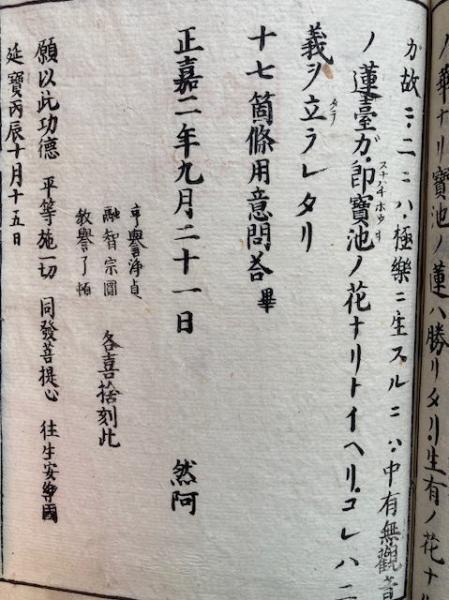 ノ華ナリ寶池ノ蓮ハ勝リタリ生有ノ花ナ
カ故ニ二ニハ極樂ニ生スルニハ中有無觀音
ノ蓮臺ガ即寶池ノ花ナリトイヘリコレハ二
義ヲ立ラレタリ
十七箇條用意問荅畢
正嘉二年九月二十一日 然阿
譽淨貞
融智宗圓 各喜捨刻此
教譽了
願以此功德 平等施一切 同發菩提心 往生安樂國
延寶丙辰十月十五日